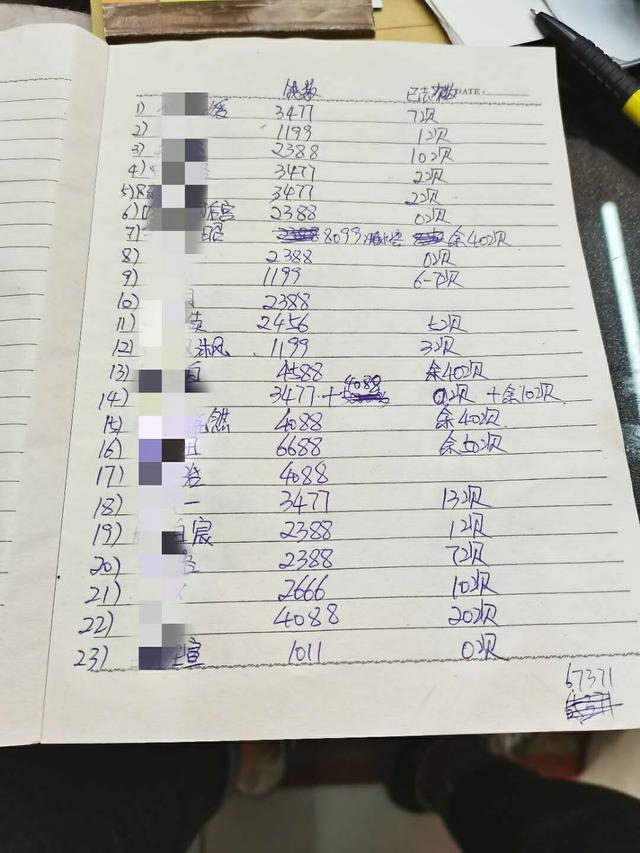 钱数 已去次数 DATE:
1) 媛 3477 7次
2) 1199 1次
3) 2388 10次
4) 3477 2次
5) 3477 2次
6) 宫 2388 0次
7) 8099 余40次
8) 2388 0次
9) 1199 6-7次
10) 2388
11) 2456 5次
12) 沐风 1199 3次
13) 4588 余40次
14) 3477+4088 0次 +余10次
15) 然 4088 余40次
16) 6688 余50次
17) 浩 4088
18) 一 3477 13次
19) 宸 2388 1次
20) 2388 7次
21) 2666 10次
22) 4088 20次
23) 宣 1011 0次
67371